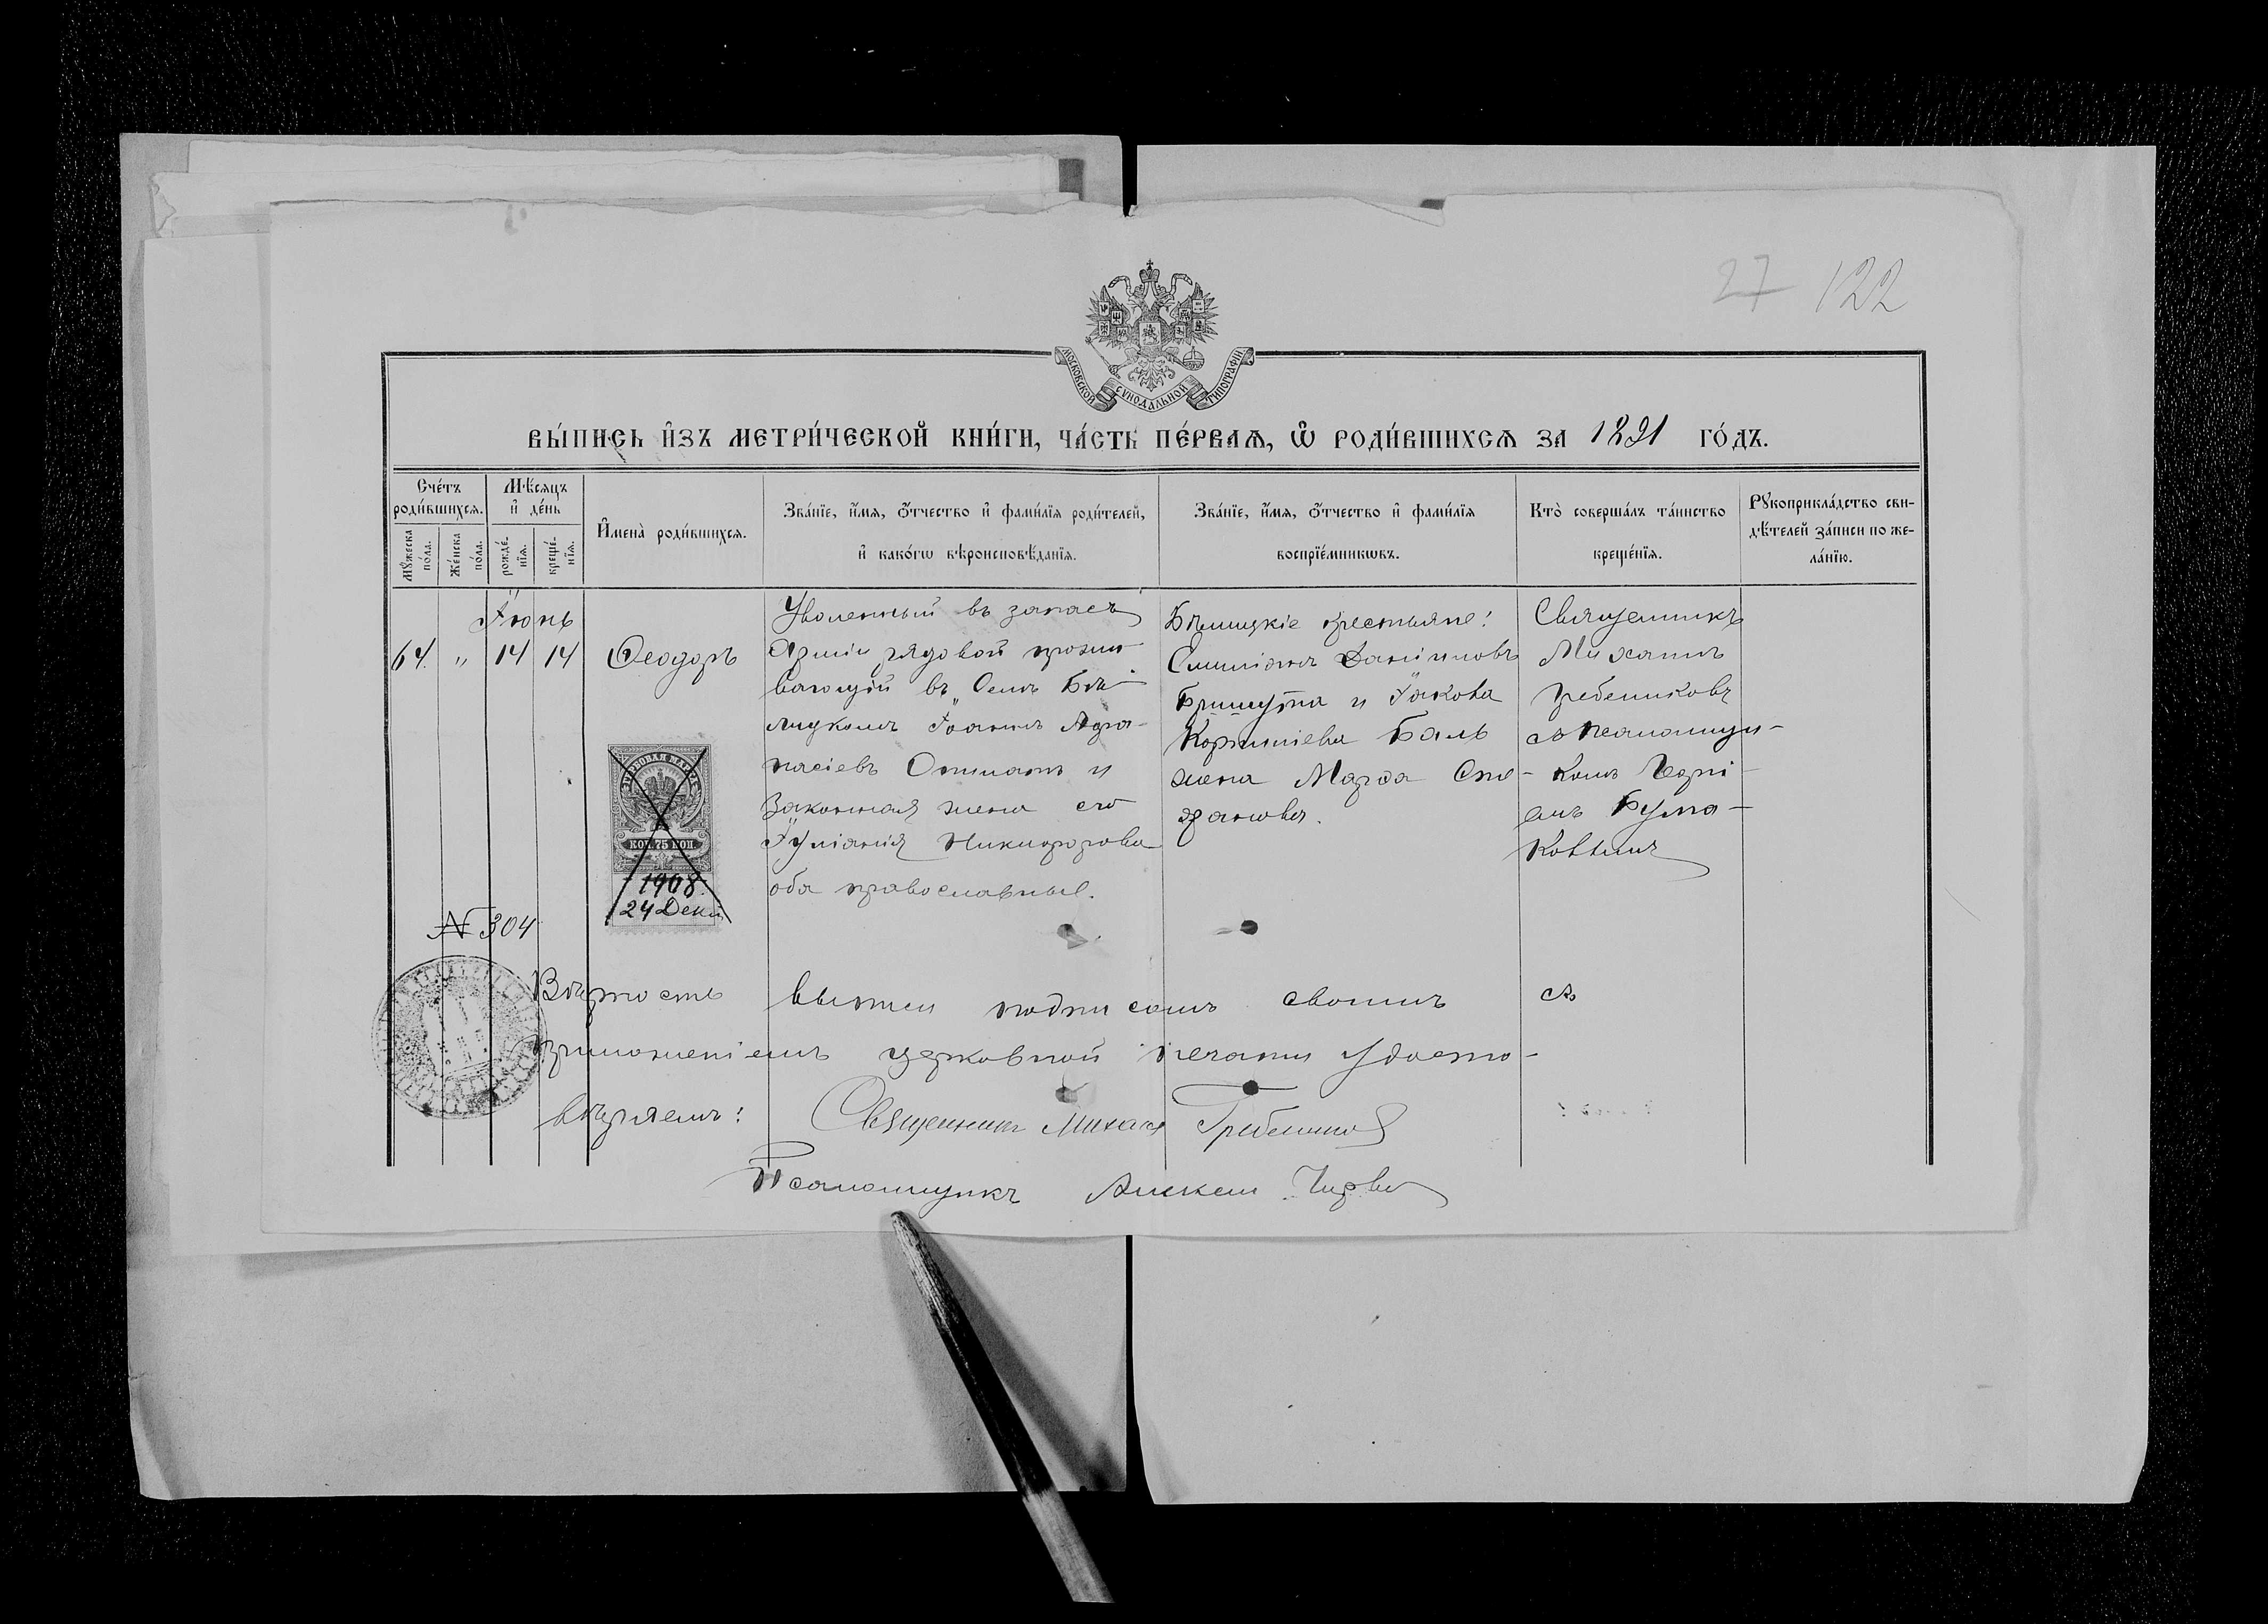 27 122
МОСКОВСКОЙ СУНОДАЛЬНОЙ ТИПОГРАФІИ
ВЫ́ПИСЬ И҆ЗЪ МЕТРИ́ЧЕСКОЙ КНИ́ГИ, ЧА́СТЬ ПЕ́РВАѦ, Ѽ РОДИ́ВШИХСѦ ЗА 1891 ГО́ДЪ.
Сче́тъ роди́вшихсѧ.
Мѣ́сѧцъ и҆ де́нь
Мꙋ́жеска по́ла.
Же́нска по́ла.
рожде́-нїѧ.
креще́-нїѧ.
И҆мена̀ роди́вшихсѧ.
Зва́нїе, и҆́мѧ, ѻ҆́тчество и҆ фами́лїѧ роди́телей,
и҆ како́гѡ вѣроисповѣ́данїѧ.
Зва́нїе, и҆́мѧ, ѻ҆́тчество и҆ фами́лїѧ
воспрїе́мникѡвъ.
Кто̀ соверша́лъ та́инство
креще́нїѧ.
Рꙋкоприкла́дство сви-
дѣ́телей за́писи по же-
ла́нїю.
Іюнь
64. " 14 14
Ѳеодоръ
Уволенный въ запасъ
Арміи рядовой прожи
вающій въ селѣ Бѣ-
лицкомъ Іоаннъ Афа-
насіевъ и
Законная жена его
Іуліанія Никифорова
оба православные.
Бѣлицкіе крестьяне:
Емиліанъ Даніиловъ
и Іакова
Корниліева Баль
жена Марѳа Сте-
фанова.
Священникъ
Михаилъ
Гребениковъ
съ псаломщи-
комъ Георгі-
емъ Бума-
ковымъ
ГЕРБОВАЯ МАРКА
КОП. 75 КОП.
1908.
24 Дек
№ 304
Вѣрность выписи подписомъ своимъ съ
приложеніемъ церковной печати удосто-
вѣряемъ:
Священникъ Михаил Гребеников
Псаломщикъ Алексей